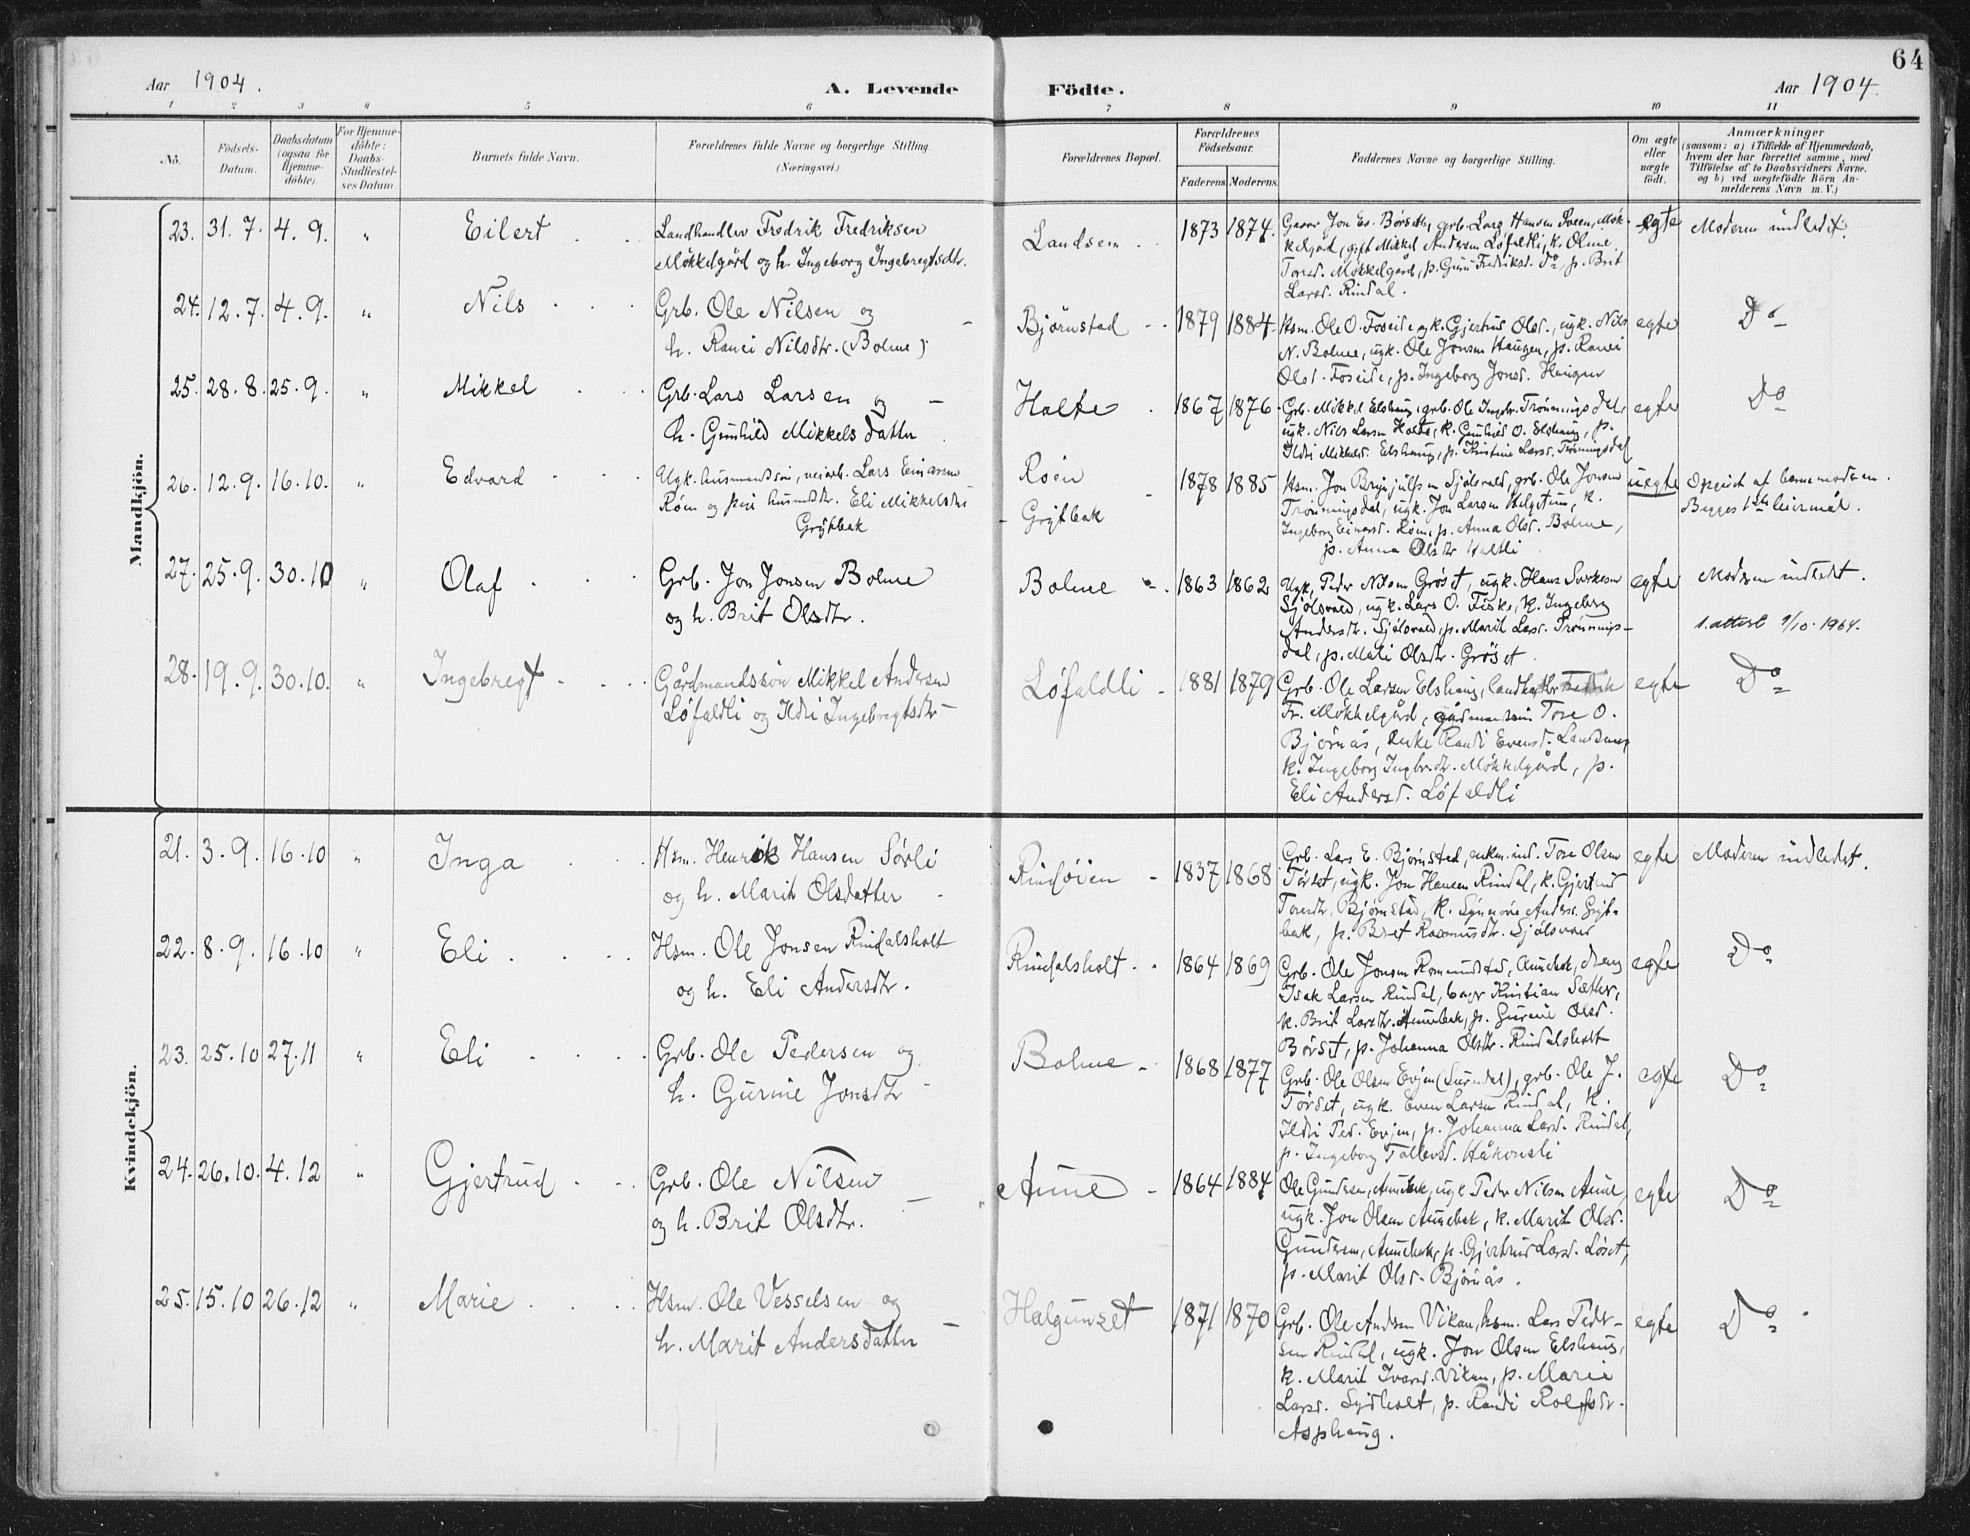 64
Aar 1904.
A. Levende Födte.
Aar 1904.
1 2 3 4 5 6 7 8 9 10 11
No.
Födsels-Datum.
Daabsdatum (ogsaa for Hjemme-döbte).
For Hjemme-döbte: Daabs-Stadfæstel-ses Datum.
Barnets fulde Navn.
Forældrenes fulde Navne og borgerlige Stilling. (Næringsvei.)
Forældrenes Bopæl.
Forældrenes Födselsaar.
Faderens. Moderens.
Faddernes Navne og borgerlige Stilling.
Om ægte eller uægte födt.
Anmærkninger
(saasom: a) i Tilfælde af Hjemmedaab,
hvem der har forrettet samme, med
Tilföielse af to Daabsvidners Navne,
og b) ved uægtefödte Börn An-
melderens Navn m. V.)
Mandkjön.
23. 31.7. 4.9. " Eilert
Landhandler Fredrik Fredriksen
Møkkelgård og h. Ingeborg Ingebregtsdtr.
Landsem
1873 1874.
Gaver Jon Es. Børseth, grb. Lars Hansen Moen, Møk-
kelgård, gift Mikkel Andersen Løfaldli, k. Oline
Toresd. Møkkelgård, p. Guru Fredriksd. do, p. Brit
Larsd. Rindal.
egte
Moderen indledet.
24. 12.7. 4.9. " Nils
Grb. Ole Nilsen og
h. Ranei Nilsdtr. (Bolme)
Bjørnstad
1879 1884
Hsm. Ole O. Foseide og k. Gjertrud Olsd., ugk. Nils
N. Bolme, ugk. Ole Jonsen Haugen, p. Ranei
Olsd. Foseide, p. Ingeborg Jonsd. Haugen
egte
Do
25. 28.8. 25.9. " Mikkel
Grb. Lars Larsen og
h. Gunhild Mikkelsdatter
Holte
1867 1876
Grb. Mikkel Elshaug, grb. Ole Ingebr. Trønningsdal,
ugk. Nils Larsen Holte, k. Gunhild O. Elshaug, p.
Ildri Mikkelsd. Elshaug, p. Kristine Larsd. Trønningsdal
egte
Do
26. 12.9. 16.10. " Edvard
Ugk. husmandssøn, veiarb. Lars Einarsen
Røen og pige husmdtr. Eli Mikkelsdtr
Grytbak
Røen
Grytbak
1878 1885
Hsm. Jon Brynjulfsen Sjølsvold, grb. Ole Jonsen
Trønningsdal, ugk. Jon Larsen Helgetun, k.
Ingeborg Einarsd. Røen, p. Anna Olsd. Bolme,
p. Anna Olsdtr Holtli
uegte
Opgivet af barnemoderen.
Begges 1ste leiermål.
27. 25.9. 30.10 " Olaf
Grb. Jon Jonsen Bolme
og h. Brit Olsdtr.
Bolme
1863 1862
Ugk. Peder Nilsen Grøset, ugk. Hans Sivertsen
Sjølsvold, ugk. Lars O. Fiske, k. Ingeborg
Andersdtr. Sjølsvold, p. Marit Larsd. Trønnings-
dal, p. Mali Olsdtr. Grøset.
egte
Moderen indledet.
1. attest 9/10. 1964.
28. 19.9. 30.10. " Ingebregt
Gårdmandssøn Mikkel Andersen
Løfaldli og Ildri Ingebregtsdtr
Løfaldli
1881 1879
Grb. Ole Larsen Elshaug, landhdlr Fredrik
Fr. Møkkelgård, gårdmandssøn Tore O.
Bjørnås, enke Randi Evensd. Landsem,
k. Ingeborg Ingbr.dtr. Møkkelgård, p.
Eli Andersd. Løfaldli
egte
Do
Kvindekjön.
21. 3.9. 16.10 " Inga
Hsm. Henrik Hansen Sørli
og h. Marit Olsdatter
Rindøien
1837 1868
Grb. Lars E. Bjørnstad, enkem. ind. Tore Olsen
Tørset, ugk. Jon Hansen Rindal, k. Gjertrud
Toresdtr. Bjørnstad, k. Synnøve Andersd. Gryt-
bak, p. Bret Rasmusdtr. Sjølsvold
egte
Moderen indledet.
22. 8.9. 16.10 " Eli
Hsm. Ole Jonsen Rindalsholt
og h. Eli Andersdtr.
Rindalsholt
1864 1869
Grb. Ole Jonsen Romundstad, Aunebak, dreng
Isak Larsen Rindal, bager Kristian Sæther,
k. Brit Larsdtr. Aunebak, p. Gurine Olsd.
Børset, p. Johanna Olsdtr. Rindalsholt
egte
Do
23. 25.10 27.11 " Eli
Grb. Ole Pedersen og
h. Gurine Jonsdtr
Bolme
1868 1877
Grb. Ole Olsen Evjen (Surndal), grb. Ole J.
Tørset, ugk. Even Larsen Rindal, k.
Ildri Ped. Evjen, p. Johanna Larsd. Rindal,
p. Ingeborg Tollevsd. Håkonsli
egte
Do
24. 26.10. 4.12 " Gjertrud
Grb. Ole Nilsen
og h. Brit Olsdtr.
Aune
1864 1884
Ole Gundersen, Aunebak, ugk Peder Nilsen Aune,
ugk. Jon Olsen Aunebak, k. Marit Olsd.
Gundersen, Aunebak, p. Gjertrud Larsd. Løset,
p. Marit Olsd. Bjørnås.
egte
Do
25. 15.10 26.12 " Marie
Hsm. Ole Vesselsen og
h. Marit Andersdatter
Halgunset
1871 1870
Grb. Ole Andersen Vikan, hsm. Lars Peder-
sen Rindal, ugk. Jon Olsen Elshaug,
k. Marit Ivarsd. Vikan, p. Marie
Larsd. Sydholt, p. Randi Rolfsdr.
Asphaug.
egte
Do